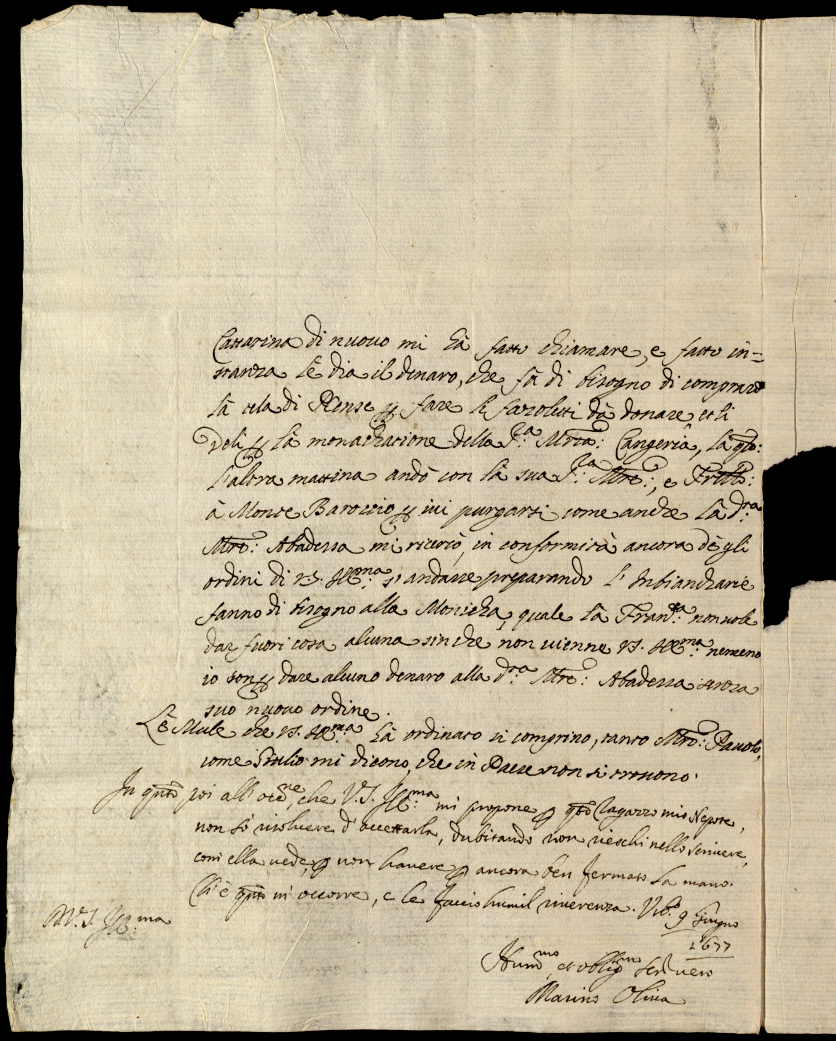 Cattarina di nuovo mi hà fatto chiamare, e fatto in=
stanza le dia il denaro, che fà di bisogno di comprare
la tela di Rense per fare li fazoletti dà donare, et li
veli per la monacatione della S.ra Mad.a: Cangeria, la qle:
l'altra mattina andò con la sua S.ra Mre:, e Frello:
à Monte Baroccio per ivi purgarsi come anche la d.ra
Mre: Abadessa mi ricercò, in conformità ancora dè gli
ordini di V.S. Ill.ma s'andasse preparando l'Imbiancharie
fanno di bisogno alla Monicha, quale la Fran.ca non vole
dar fuori cosa alcuna sin che non vienne V.S. Ill.ma nemeno
io son per dare alcuno denaro alla d.ra Mre: Abadessa senza
suo nuovo ordine.
Le Mule che V.S. Ill.ma hà ordinato si comprino, tanto Mro: Pauolo,
come Giulio mi dicono, che in Paese non si trovono.
In qnto poi all' occ.ne, che V.S. Ill.ma mi propone per qsto Ragazzo mio Nepote,
non sò risolvere d'accettarla, dubitando non rieschi nello scrivere,
com ella vede, per non havere per ancora ben fermato la mano.
Ch'è qnto m'occorre, e le faccio humil riverenza. Vrb.o 9 Giugno
1677
V.S. Ill.ma
Hum.mo, et obblig.mo servit vero
Marino Oliva